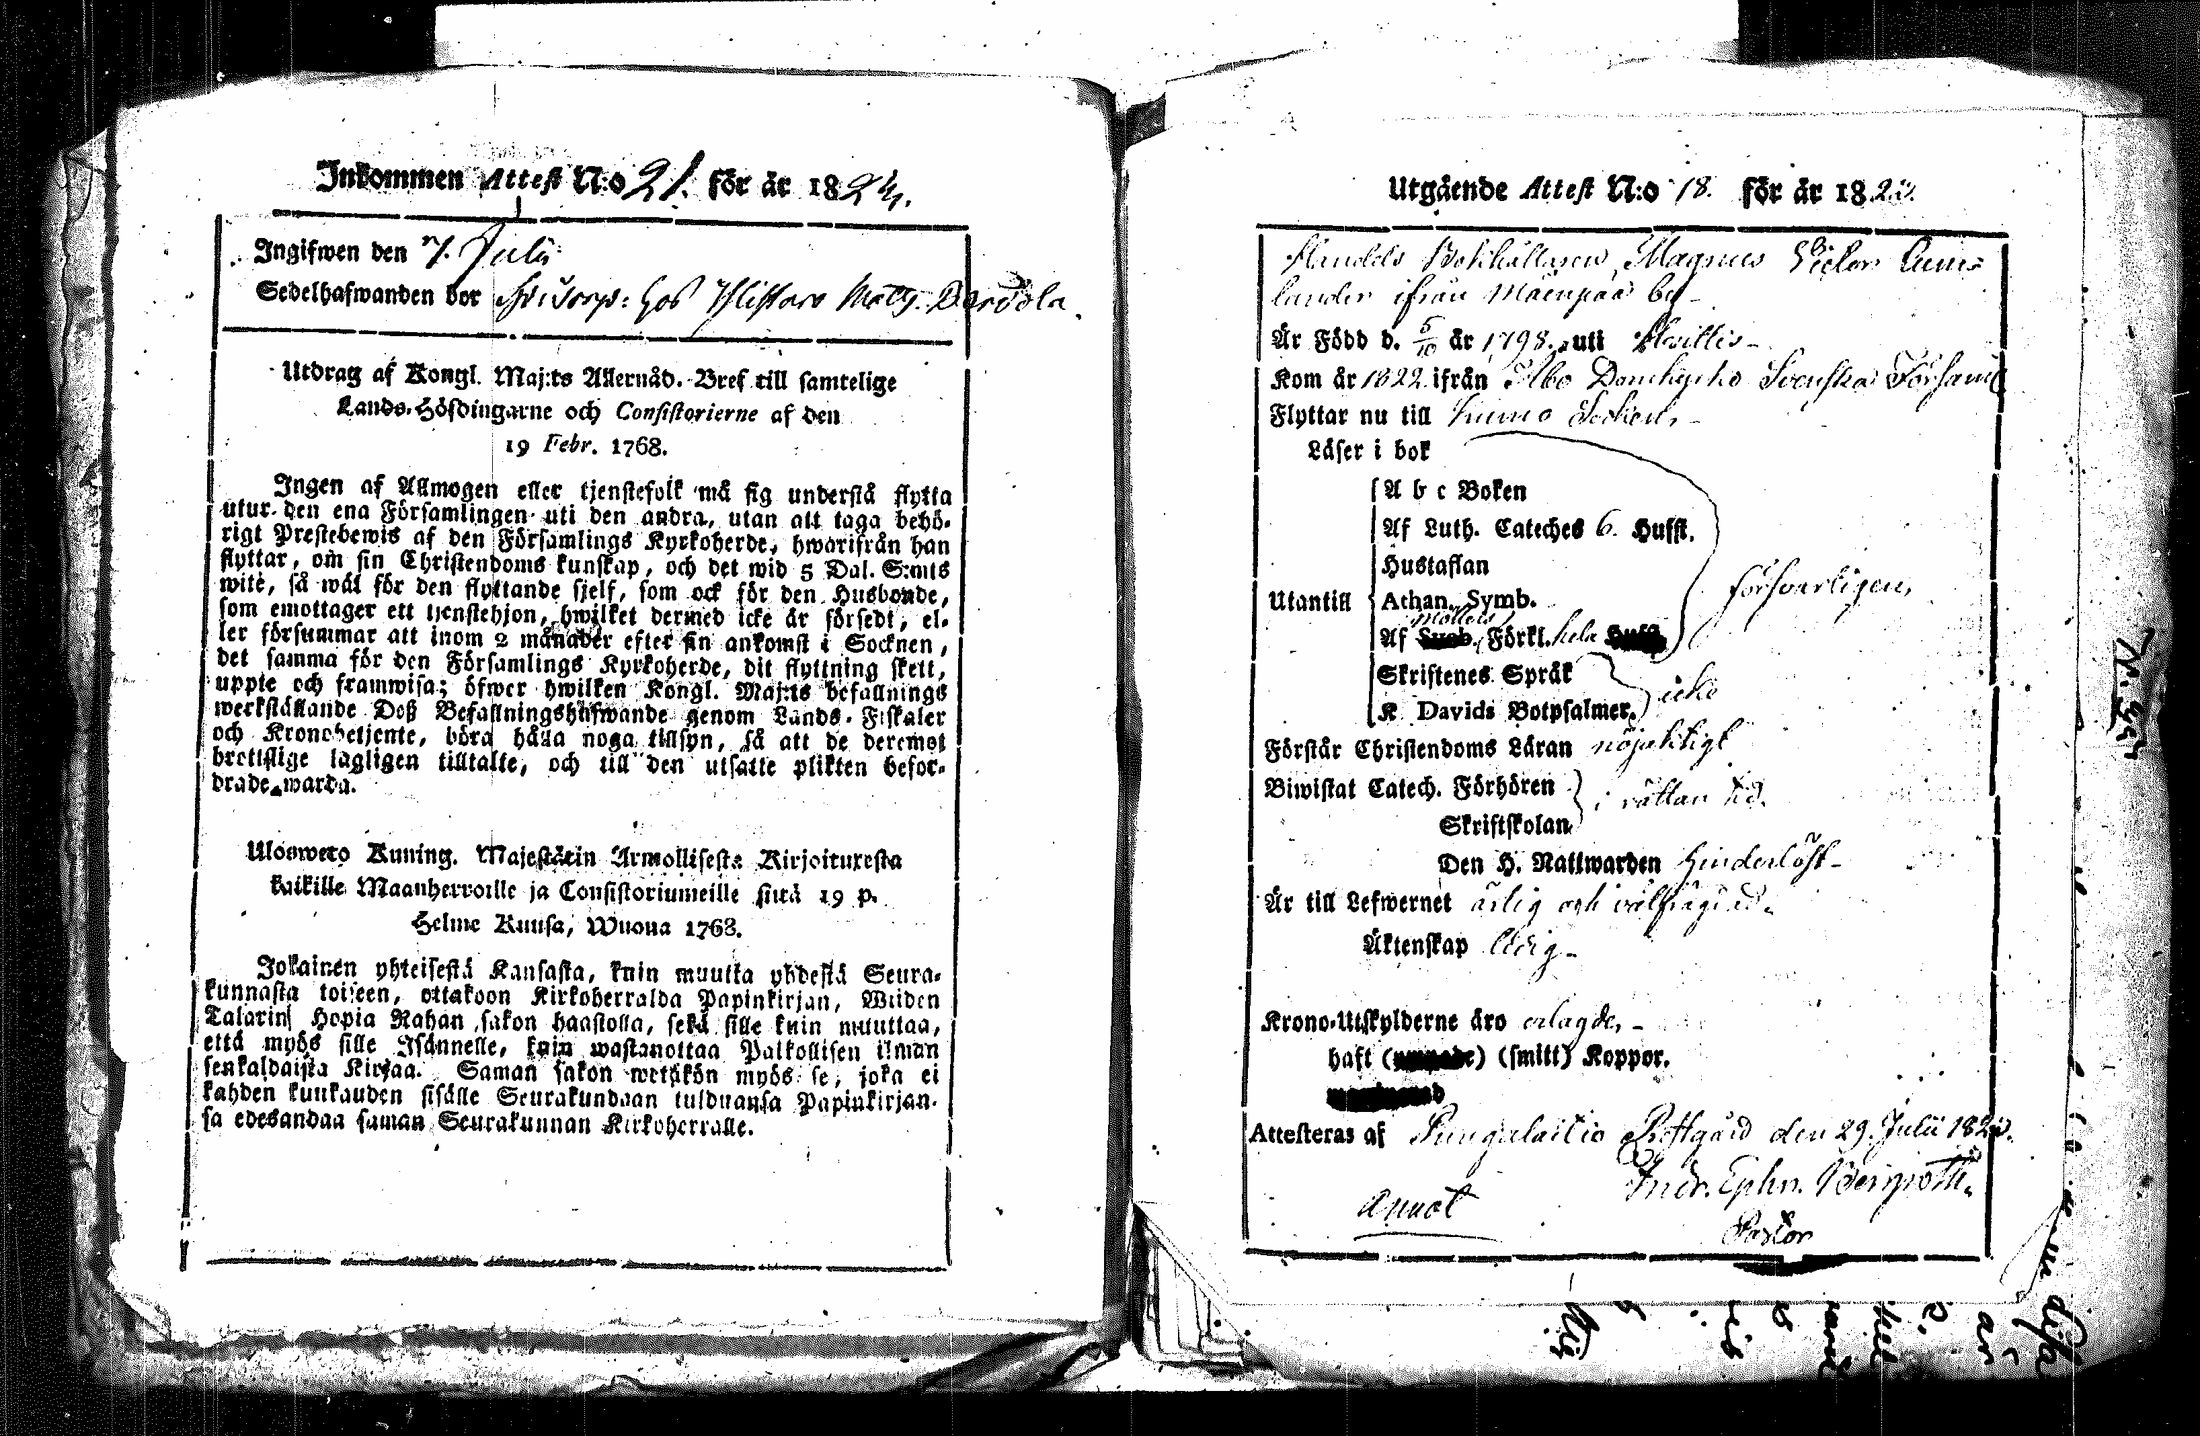 Inkommen Attest N:o 21. för år 1824.
Ingifwen den 7. Julii
Sedelhafwanden bor hos Matts
Utdrag af Kongl. Maj:ts Allernåd. Bref till samtelige
Lands-Höfdingarne och Consistorierne af den
19 Febr. 1768.
Ingen af Allmogen eller tjenstefolk må sig understå flytta
utur den ena Församlingen uti den andra, utan att taga behö-
rigt Prestebewis af den Församlings Kyrkoherde, hwarifrån han
flyttar, om sin Christendoms kunskap, och det wid 5 Dal. S:mts
wite, så wäl för den flyttande sjelf, som ock för den Husbonde,
som emottager ett tjenstehjon, hwilket dermed icke är försedt, el-
ler försummar att inom 2 månader efter sin ankomst i Socknen,
det samma för den Församlings Kyrkoherde, dit flyttning skett,
uppte och framwisa; öfwer hwilken Kongl. Maj:ts befallnings
werkställande Deß Befallningshafwande genom Lands-Fiskaler
och Kronobetjente, böra hålla noga tillsyn, så att de deremot
brottslige lagligen tilltalte, och till den utsatte plikten befor-
drade warda.
Ulosweto Kuning. Majestätin Armollisesta Kirjoituxesta
kaikille Maanherroille ja Consistoriumeille siitä 19 p.
Helme Kuusa, Wuona 1768.
Jokainen yhteisestä Kansasta, kuin muutta yhdestä Seura-
kunnasta toiseen, ottakoon Kirkoherralda Papinkirjan, Wiiden
Talarin Hopia Rahan sakon haastolla, sekä sille kuin muuttaa,
että myös sille Isännelle, kuin wastanottaa Palkollisen ilman
senkaldaista Kirjaa. Saman sakon wetäkön myös se, joka ei
kahden kuukauden sisälle Seurakundaan tulduansa Papinkirjan-
sa edesandaa saman Seurakunnan Kirkoherralle.
Utgående Attest N:o 18. för år 182
Handels Bokhållaren Magnus Victor
lander ifrån Mäenpää by
Är Född d. 5/10 år 1798. uti
Kom år 1822 ifrån Åbo Domkyrko Svenska Församl
Flyttar nu till Kumo Socken,
Läser i bok
A b c Boken
Af Luth. Cateches 6. Hufst.
Hustaflan
Utantill Athan. Symb.
Möllers
Af Förkl. hela
försvarligen,
Skriftenes Språk
K Davids Botpsalmer. icke
Förstår Christendoms Läran nöjaktigt
Biwistat Catech. Förhören
i rättan tid.
Skriftskolan
Den H. Nattwarden hinderlöst
Är till Lefwernet ärlig och välfrägdad.
Äktenskap ledig
Krono-Utskylderne äro erlagde,
haft (smitt) Koppor.
Attesteras af Pungalaitio Prestgård den 29. Julii 182
Andr. Ephr.
Pastor
annot